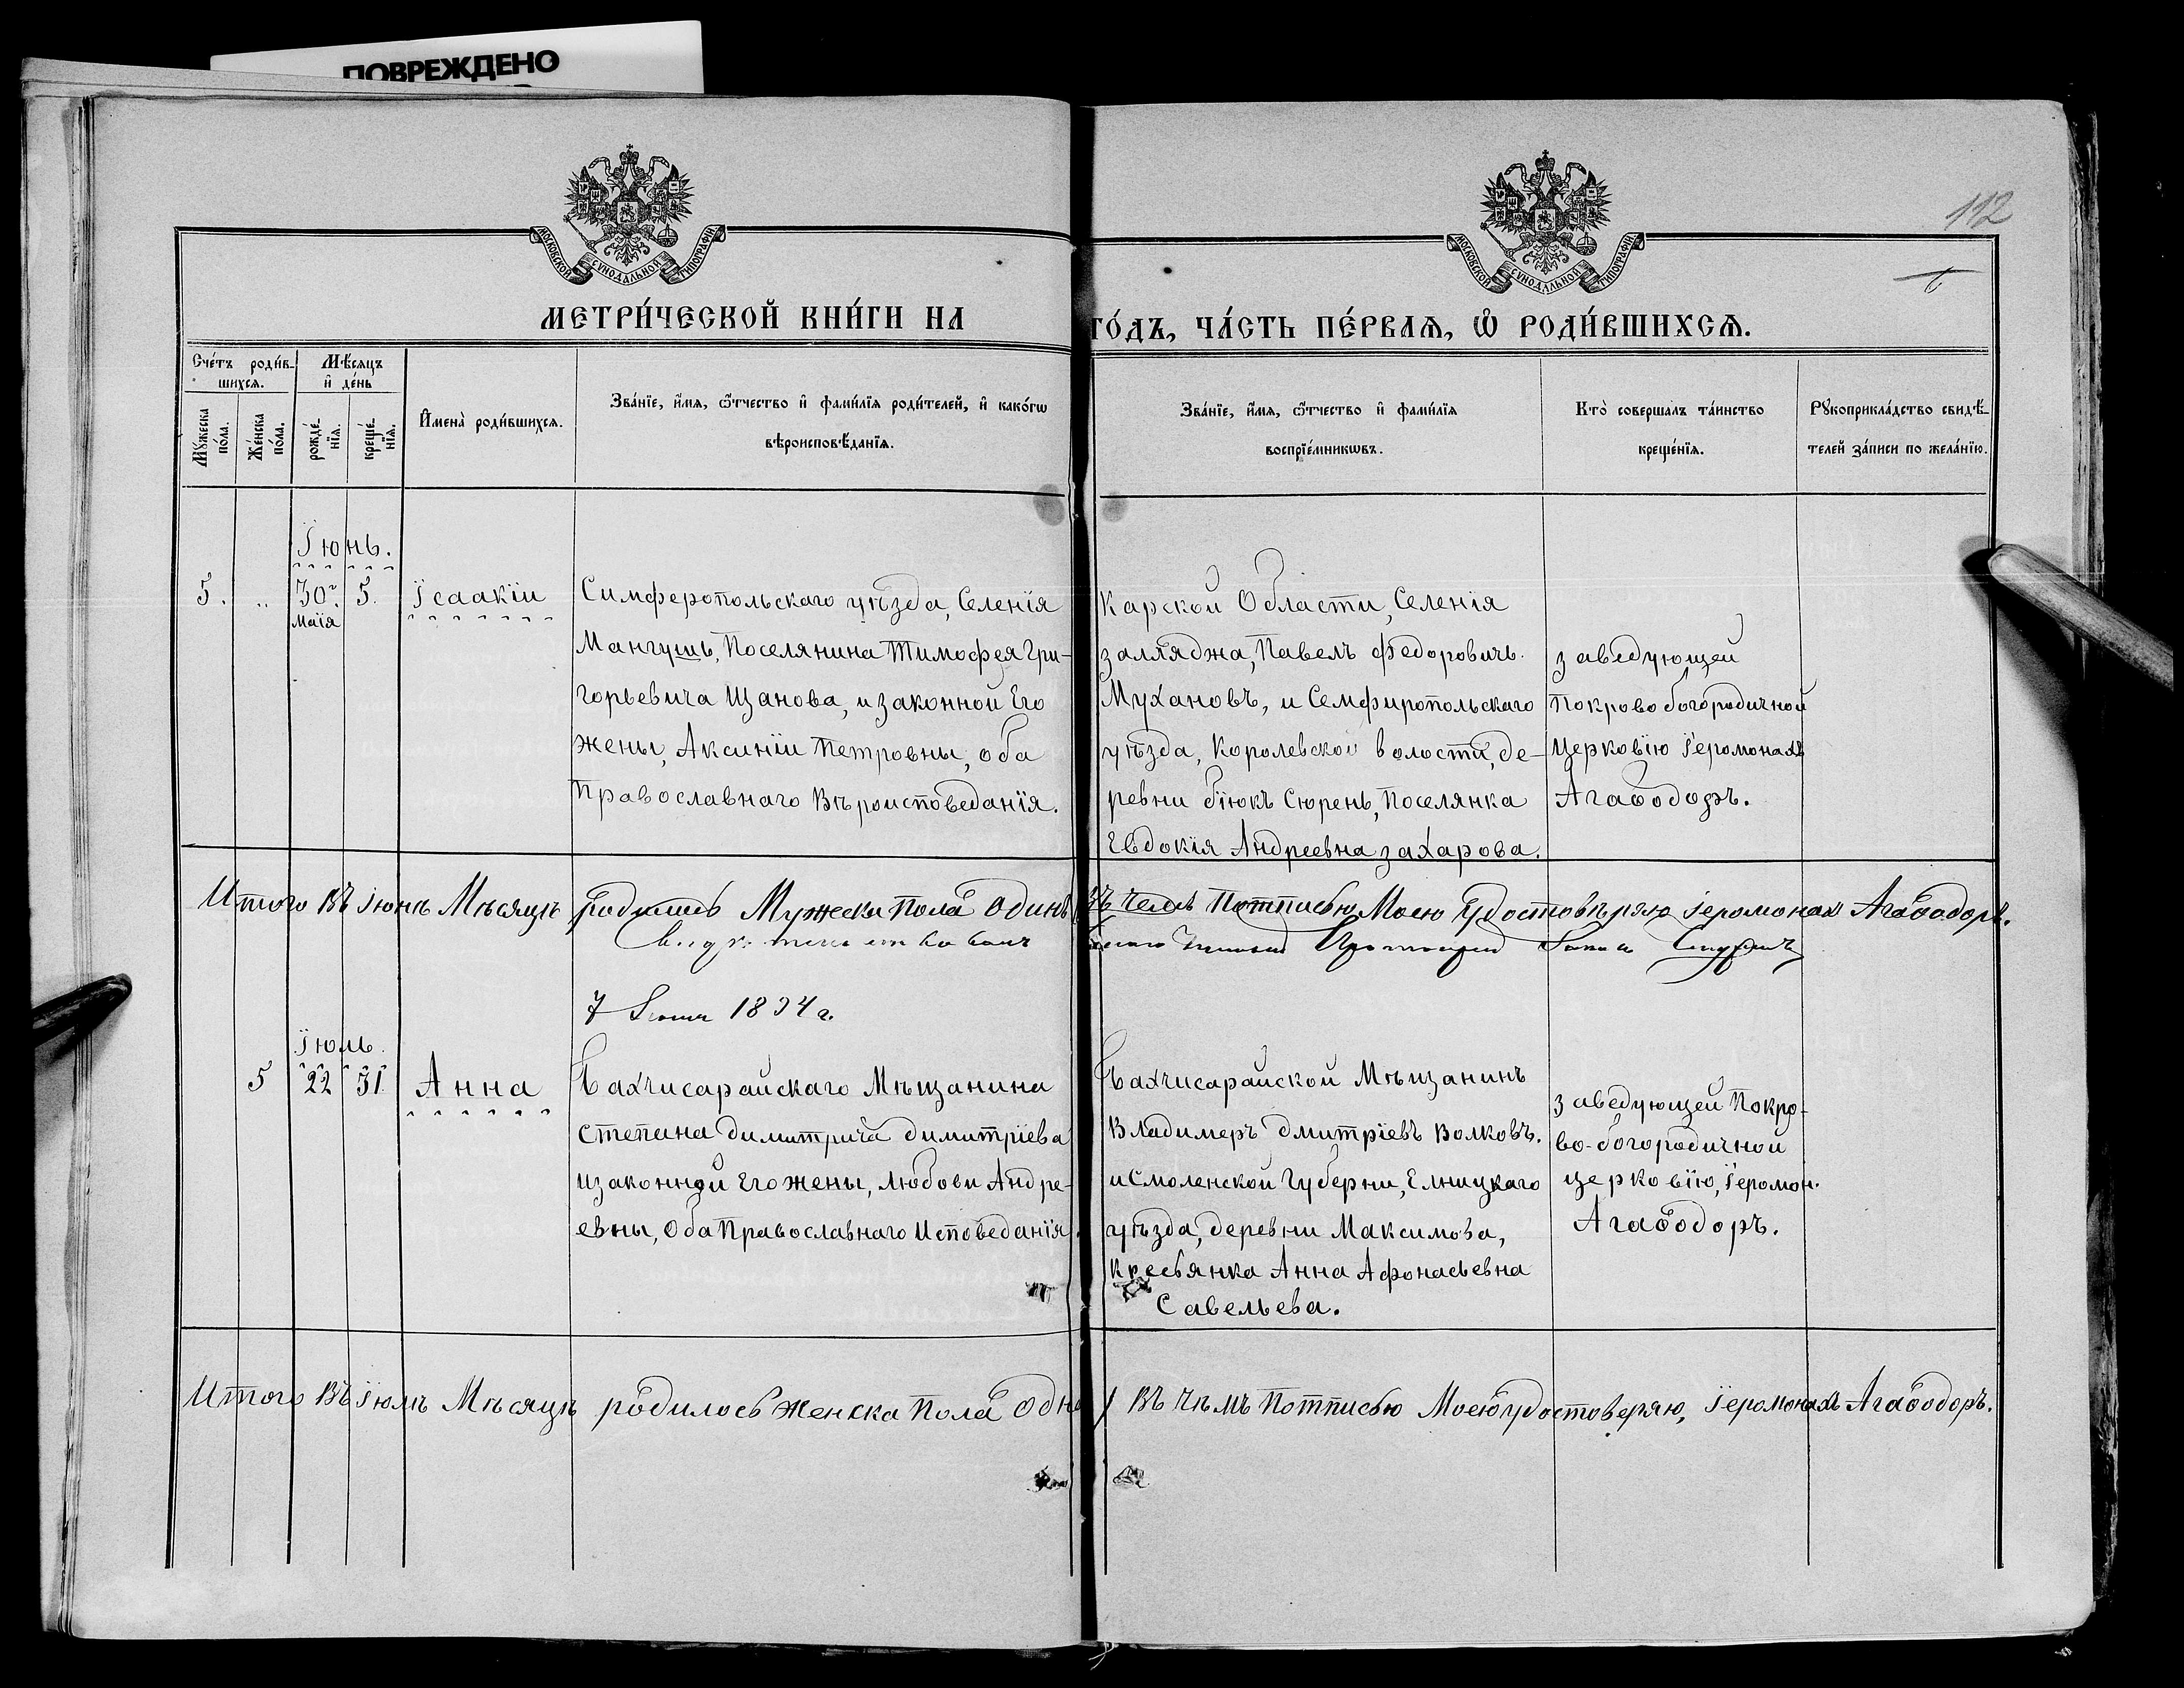 ПОВРЕЖДЕНО
МОСКОВСКОЙ СѴНОДАЛЬНОЙ ТИПОГРАФІИ
МОСКОВСКОЙ СѴНОДАЛЬНОЙ ТИПОГРАФІИ
112
МЕТРИ́ЧЕСКОЙ КНИ́ГИ НА
ГО́ДЪ, ЧА́СТЬ ПЕ́РВАѦ, Ѡ҆ РОДИ́ВШИХСѦ.
Сче́тъ роди́в-
шихсѧ.
Мѣ́сѧцъ
и҆ де́нь
Мꙋ́жеска
по́ла.
Же́нска
по́ла.
рожде́-
нїѧ.
креще́-
нїѧ.
И҆мена̀ роди́вшихсѧ.
Зва́нїе, и҆́мѧ, ѻ҆́тчество и҆ фами́лїѧ роди́телей, и҆ како́гѡ
вѣроисповѣ́данїѧ.
Зва́нїе, и҆́мѧ, ѻ҆́тчество и҆ фами́лїѧ
воспрїе́мникѡвъ.
Кто̀ совершалъ та́инство
креще́нїѧ.
Рꙋкоприкла́дство свидѣ́-
телей за́писи по жела́нїю.
Їюнь.
5. „ 30го 5. Їсаакїи
Маїя
Симферопольскаго уѣзда, Селенїя
Мангушъ, Поселянина Тимофея Гри-
горьевича Щанова, и законной Его
жены, Аксинїи Петровны, оба
Православнаго Вѣроисповеданїя.
Карской Области, Селенїя
заллджа, Павелъ Федоровичъ
Мухановъ, и Семфиропольскаго
уѣзда, Королевской волости, де-
ревни бїюкъ Сюрень, Поселянка
Евдокїя Андреевна захарова.
заведующей
Покрово богородичной
Церковїю Їеромонахъ
Агаѳодоръ.
Итого въ Їюнѣ Мѣсяцѣ родились Мужеска Пола Одинъ
въ чемъ Потписью Моею Удостовѣряю Їеромонах Агаѳодоръ.
7 Їюня 1894 г.
Їюль.
5 22 31 Анна
Бахчисарайскаго Мѣщанина
Степана димитрича димитрїева
изаконной Его жены, Любови Андре-
евны, Оба Православнаго Исповеданїя.
Бахчисарайской Мѣщанинъ
Владимеръ дмитрїевъ Волковъ.
и Смоленской Губерни, Елницкаго
уѣзда, деревни Максимова,
Кресьянка Анна Афонасьевна
Савельева.
заведующей Покро-
во-богородичной
церковїю, Їеромон.
Агаѳодоръ.
Итого Въ Їюлѣ Мѣсяцѣ родилось Женска Пола Одна
Въ чѣмъ Потписью Моею удостоверяю, Їеромонахъ Агаѳодоръ.